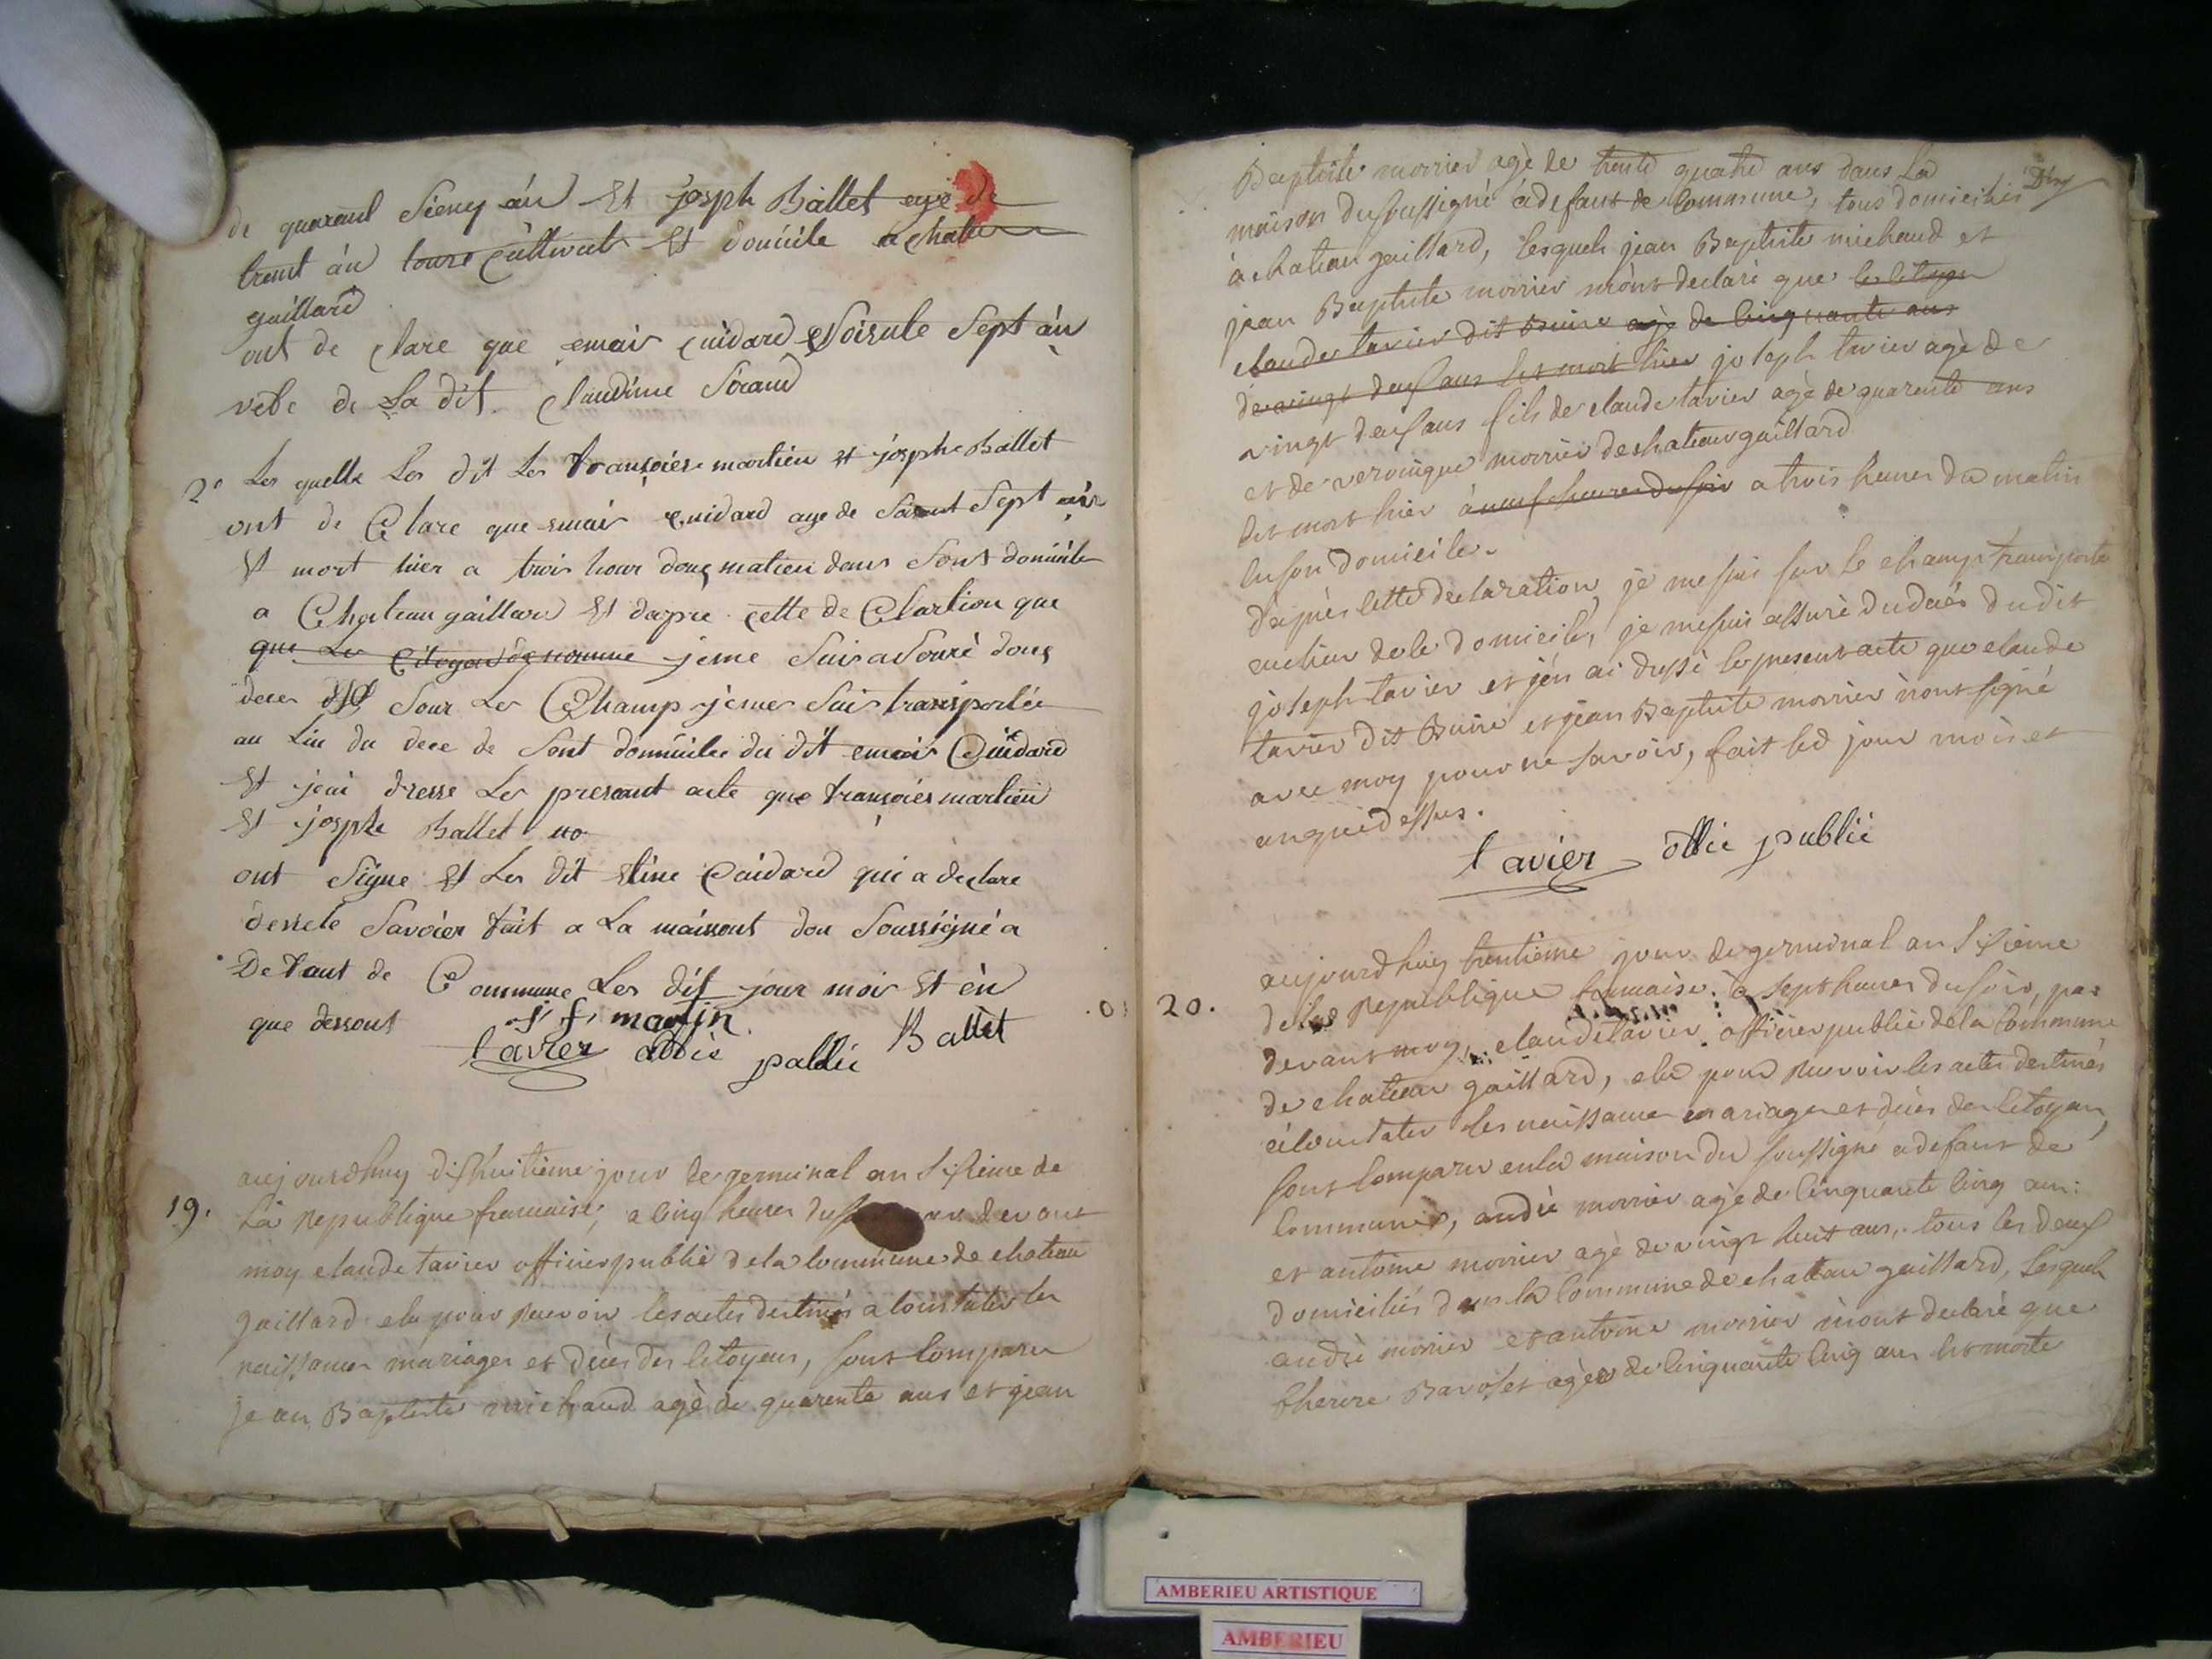 de quaraul Sienq án Et joseph Ballet agé de
trant án toure Cultivat Et domicile a chate
gaillard
ont de clare que emair cuidard Soisule Sept án
veve de La dit Claudine Soraud
2º Les quelle Les dit Les françoies martien et josphe Ballet
ont de Clare que emair Cuidard age de Soisent Sept án
Et mort hier a trois hour douç matien dans Sont domicile
a Chateau gaillard Et dapre cette de Clartion que
que Les Citoyen denomme jeme Suis a Souré douç
deces Sour Les Champ jeme Suis transportée
au Lin du dece de Sont domicile du dit emair Cuidard
Et jeai dresse Les presant acte que françoies martien
Et josphe Ballet no
ont Signe Et Les dit etine Cuidard qui a declare
desrete Savoier fait a La maisout dou Soussigné a
Defaut de Commune Les dit jour mois Et èn
que dessout j f martin Ballet
tavier offié pablie
19. aujourdhuy dishuitième jour de germinal an Sixieme de
La Republique francaise, a cinq heures du par devant
moy claude tavier officier public dela commune de chateau
gaillard elu pour recevoir les actes destinés a constater les
naissances mariages et décès des citoyens, sont comparu
jean Baptiste michaud agé de quarente ans et jean
Baptiste morrier agé de trente quatre ans dans La
maison du soussigné à defaut de commune, tous domiciliés
à chateau gaillard, lesquels jean Baptiste michaud et
jean Baptiste morrier mont declaré que le citoyen
claude tavier dit Buire agé de cinquante ans
de vingt deux ans Est mort hier joseph tavier agé de
vingt deux ans fils de claude tavier agé de quarente ans
et de veronique morrier de chateau gaillard
Est mort hier à neuf heures du soir a trois heures du matin
en son domicile.
d'après cette declaration, je me suis sur le champ transporté
au lieu de le domicile, je me suis assuré du décés du dit
joseph tavier et jén ai dressé le present acte que claude
tavier dit Buire et jean Baptiste morrier nont signé
avec moy pour ne savoir, fait led jour mois et
an que dessus.
tavier offié publié
20. aujourdhuy trentième jour de germinal an sixieme
de la Republique francaise. à sept heures du soir, par
devant moy, claude tavier officier public dela commune
de chateau gaillard, elu pour recevoir les actes destinés
à constater les naissances mariages et décès des citoyens,
sont comparu en la maison du soussigné a defaut de
commune, andré morrier agé de cinquante cinq ans:
et antoine morrier agé de vingt huit ans, tous les deux
domiciliés dans la commune de chateau gaillard, lesquels
andré morrier et antoine morrier mont declaré que
therere Baroset agée de cinquante cinq ans est morte
AMBERIEU ARTISTIQUE
AMBERIEU